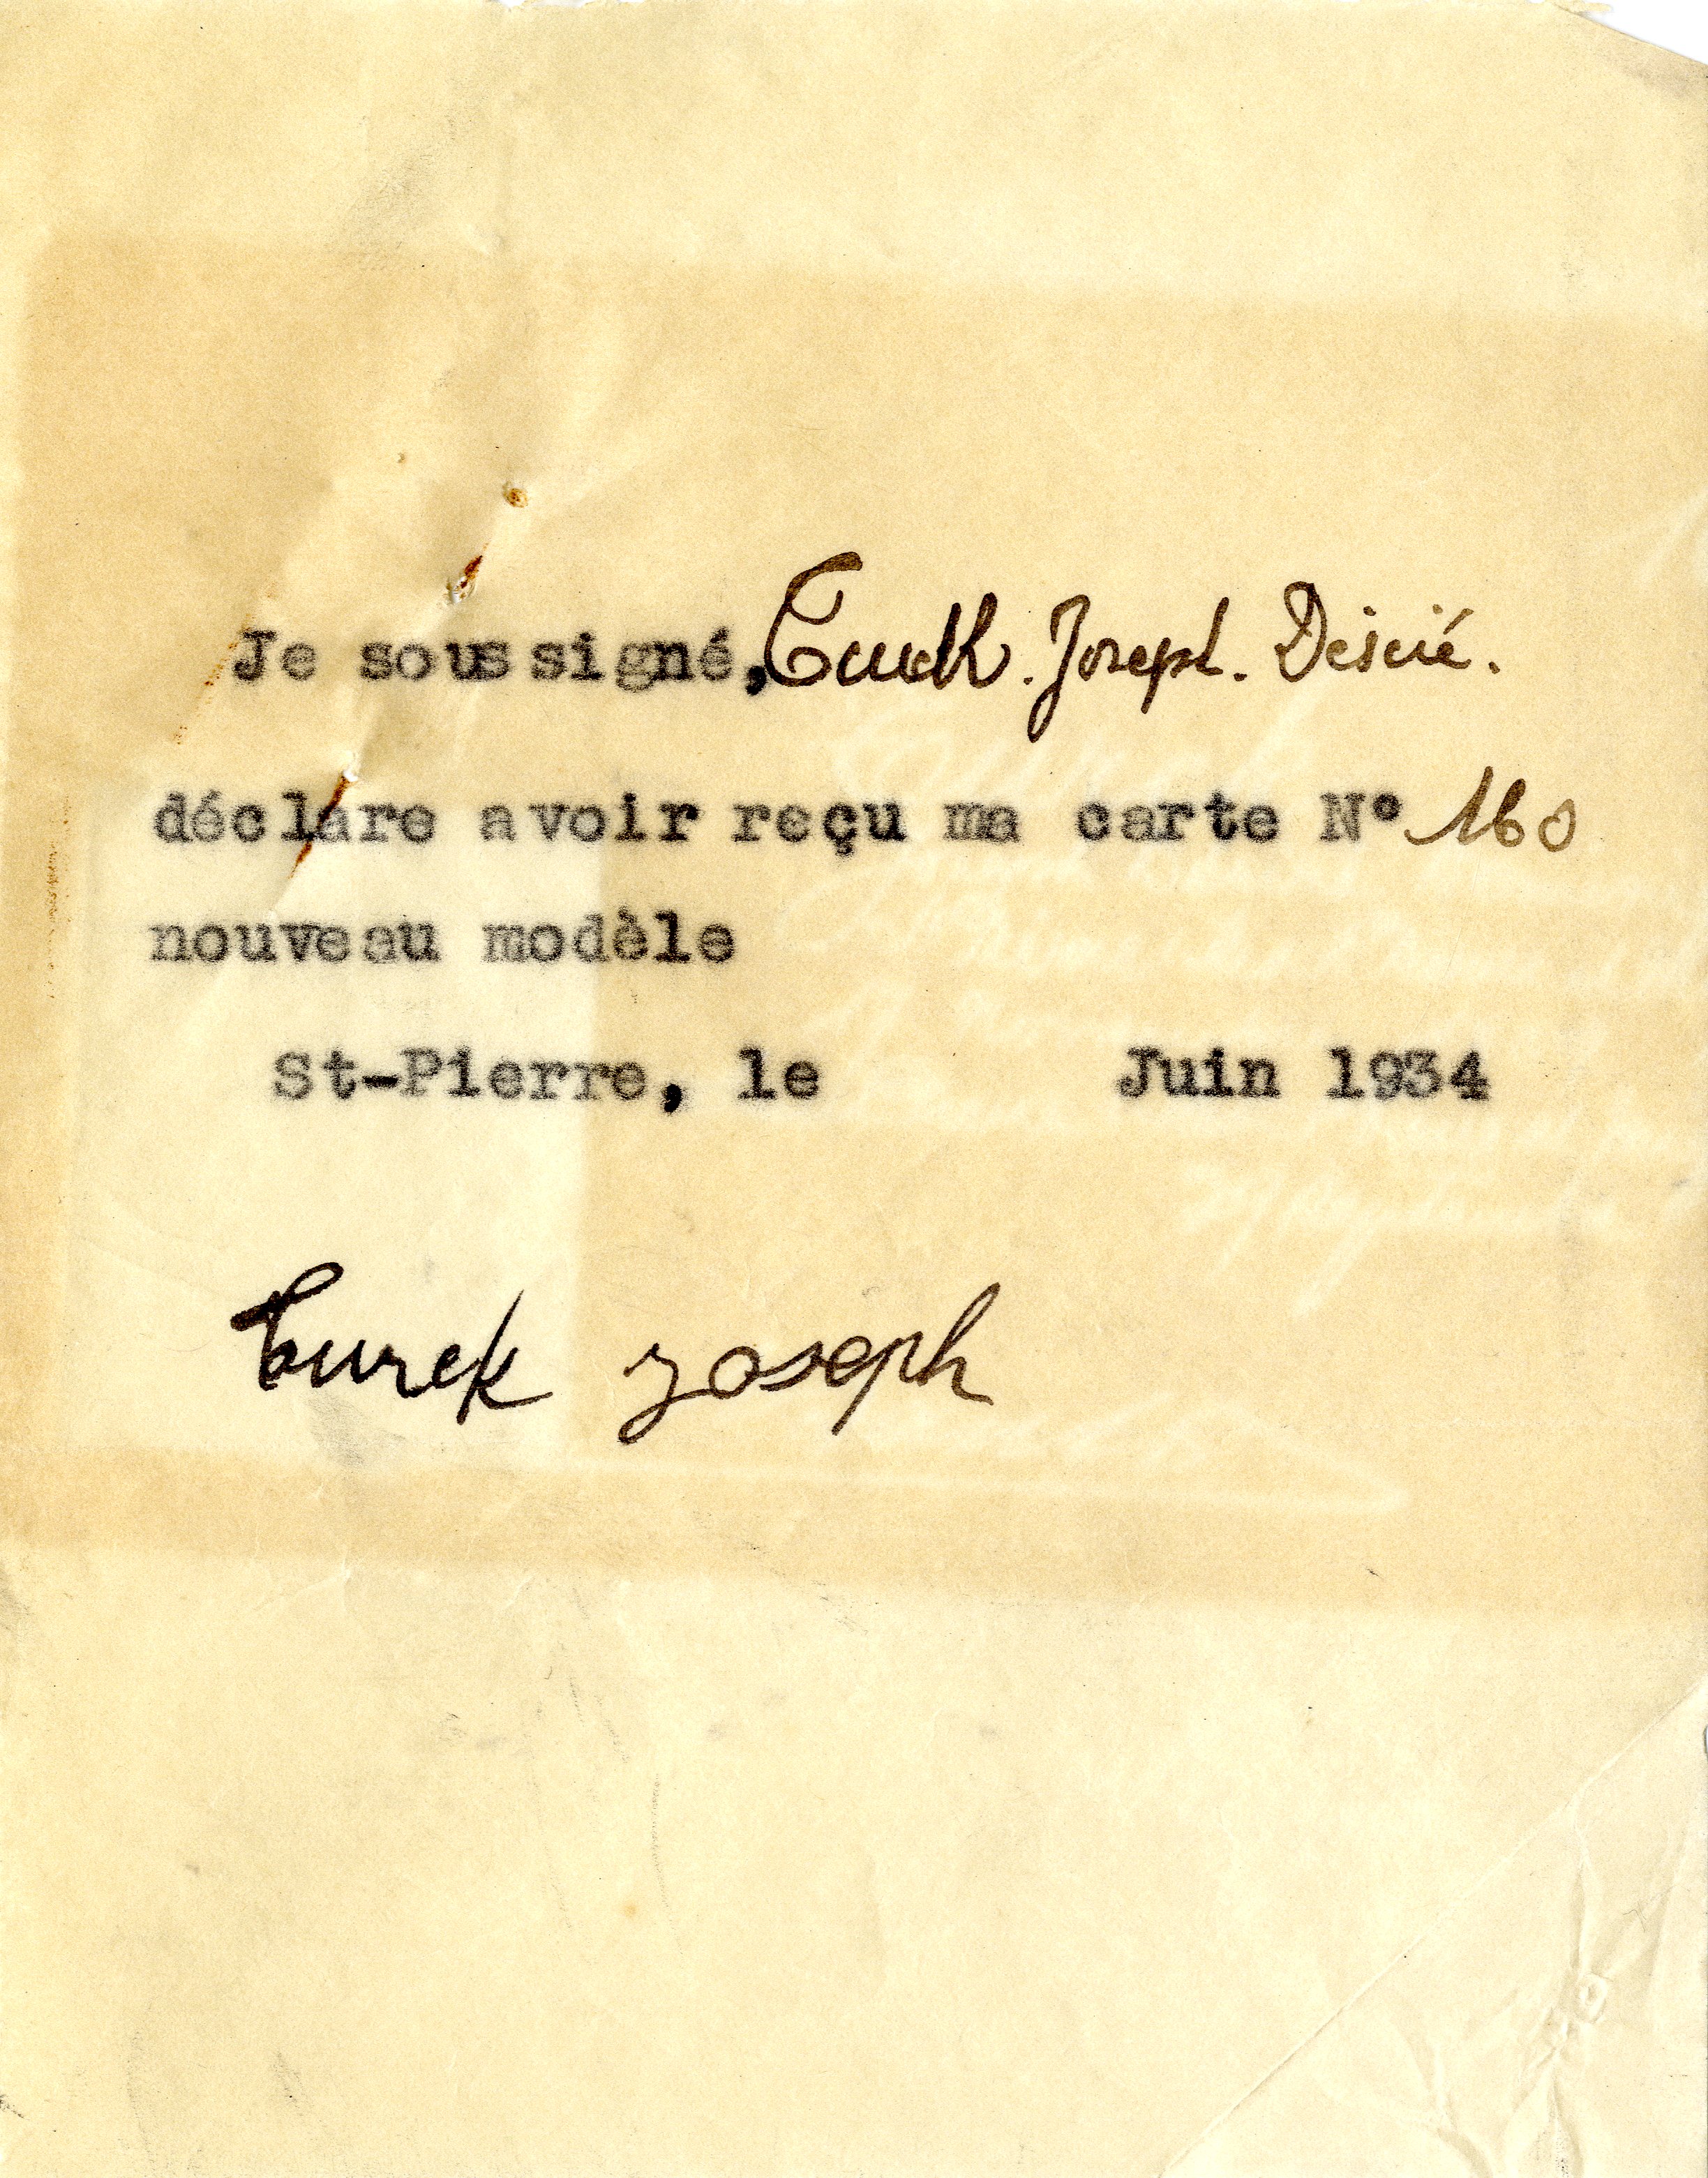 Je soussigné, Turk. Joseph. Désiré.
déclare avoir reçu ma carte N° 160
nouveau modèle
St-Pierre, le Juin 1934
Turek Joseph